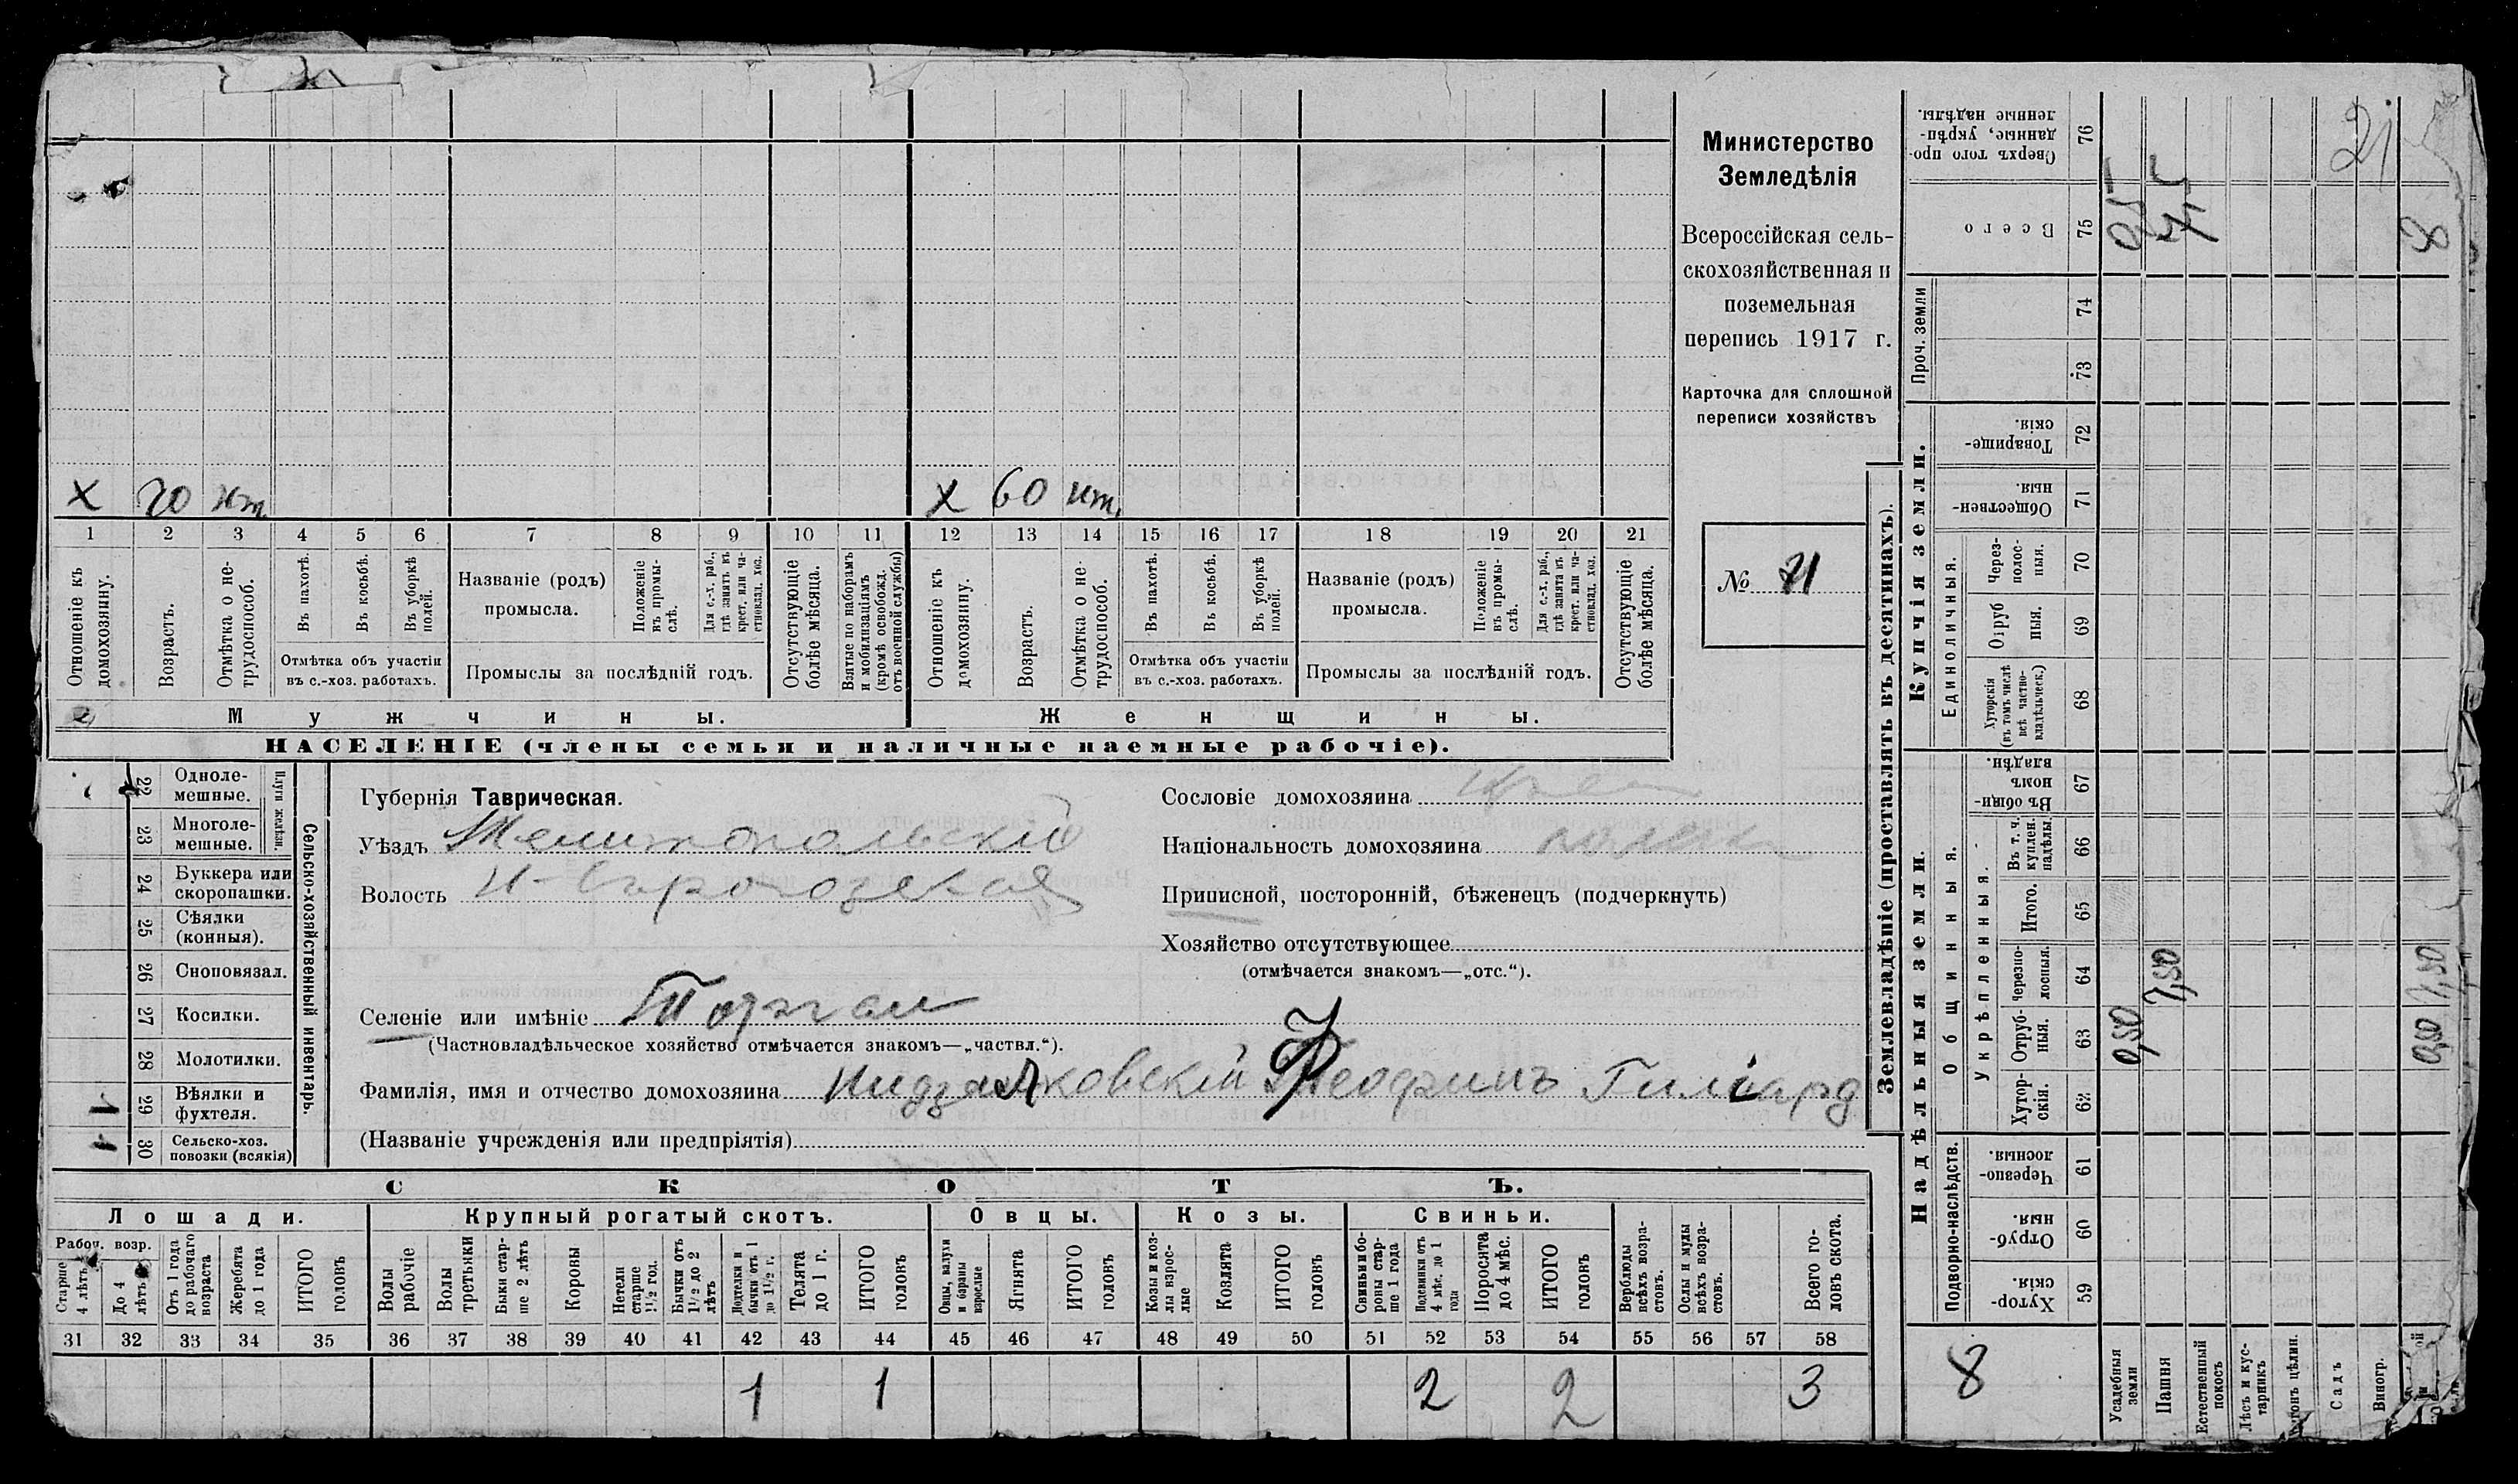 Министерство
Земледѣлія
Всероссійская сель-
скохозяйственная и
поземельная
перепись 1917 г.
Карточка для сплошной
переписи хозяйствъ
№ 71
X 70 нт. X 60 нт.
1 2 3 4 5 6 7 8 9 10 11 12 13 14 15 16 17 18 19 20 21
Отношеніе къ домохозяину.
Возрастъ.
Отмѣтка о не-трудоспособ.
Въ пахотѣ.
Въ косьбѣ.
Въ уборкѣ полей.
Отмѣтка объ участіи
въ с.-хоз. работахъ.
Названіе (родъ)
промысла.
Положеніе въ промы-слѣ.
Для с.-х. раб., гдѣ занятъ въ крест. или ча-стновлад. хоз.
Промыслы за послѣдній годъ.
Отсутствующіе болѣе мѣсяца.
Взятые по наборамъ и мобилизаціямъ (кромѣ освобожд. отъ военной службы)
Отношеніе къ домохозяину.
Возрастъ.
Отмѣтка о не-трудоспособ.
Въ пахотѣ.
Въ косьбѣ.
Въ уборкѣ полей.
Отмѣтка объ участіи
въ с.-хоз. работахъ.
Названіе (родъ)
промысла.
Положеніе въ промы-слѣ.
Для с.-х. раб., гдѣ занята въ крест. или ча-стновлад. хоз.
Промыслы за послѣдній годъ.
Отсутствующіе болѣе мѣсяца.
Мужчины. Женщины.
НАСЕЛЕНІЕ (члены семьи и наличные наемные рабочіе).
22 Одноле-мешные.
23 Многоле-мешные.
Плуги желѣзн.
24 Буккера или скоропашки.
25 Сѣялки (конныя).
26 Сноповязал.
27 Косилки.
28 Молотилки.
1 29 Вѣялки и фухтеля.
1 30 Сельско-хоз. повозки (всякія)
Сельско-хозяйственный инвентарь.
Губернія Таврическая.
Уѣздъ Мелитопольскій
Волость
Селеніе или имѣніе
(Частновладѣльческое хозяйство отмѣчается знакомъ—„частвл.“).
Фамилія, имя и отчество домохозяина
(Названіе учрежденія или предпріятія)
Сословіе домохозяина
Національность домохозяина
Приписной, посторонній, бѣженецъ (подчеркнуть)
Хозяйство отсутствующее
(отмѣчается знакомъ—„отс.“).
СКОТЪ.
Лошади. Крупный рогатый скотъ. Овцы. Козы. Свиньи.
Рабоч. возр.
Старше 4 лѣтъ
До 4 лѣтъ
Отъ 1 года до рабочаго возраста
Жеребята до 1 года
ИТОГО головъ
Волы рабочіе
Волы третьяки
Быки стар-ше 2 лѣтъ
Коровы
Нетели старше 1½ год.
Бычки отъ 1½ до 2 лѣтъ
Подтелки и бычки отъ 1 до 1½ г.
Телята до 1 г.
ИТОГО головъ
Овцы, валухи и бараны взрослые
Ягнята
ИТОГО головъ
Козы и коз-лы взрос-лые
Козлята
ИТОГО головъ
Свиньи и бо-ровы стар-ше 1 года
Подсвинки отъ 4 мѣс. до 1 года
Поросята до 4 мѣс.
ИТОГО головъ
Верблюды всѣхъ возра-стовъ.
Ослы и мулы всѣхъ возра-стовъ.
Всего го-ловъ скота.
31 32 33 34 35 36 37 38 39 40 41 42 43 44 45 46 47 48 49 50 51 52 53 54 55 56 57 58
1 1 2 2 3
Землевладѣніе (проставлять въ десятинахъ).
Купчія земли.
Надѣльныя земли.
Сверхъ того про-данные, укрѣп-ленные надѣлы. 76
Всего 75
Проч. земли
74
73
Товарище-скія. 72
Обществен-ныя. 71
Единоличныя.
Через-полос-ныя. 70
Отруб ныя. 69
Хуторскія (въ томъ числѣ всѣ частно-владѣльческ.) 68
Въ общи-номъ владѣн. 67
Общинныя.
Укрѣпленныя.
Въ т. ч. куплен. надѣлы. 66
Итого. 65
Черезпо-лосныя. 64 7,50
Отруб-ныя. 63 0,50
Хутор-скія. 62
Подворно-наслѣдств.
Черезпо-лосныя. 61
Отруб-ныя 60
Хутор-скія. 59
8
Усадебныя земли
Пашня
Естественный покосъ
Лѣсъ и кус-тарникъ
Садъ
Виногр.
8
0,50 7,50